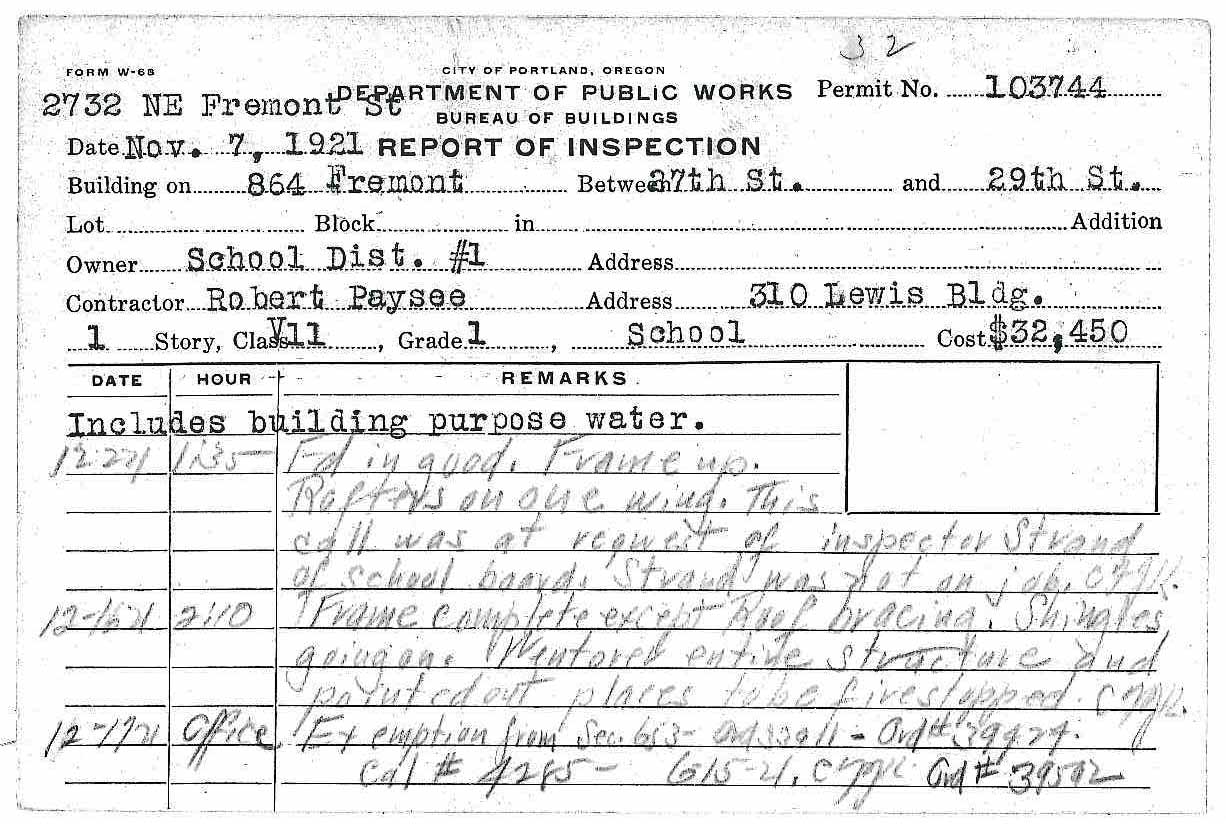 32
FORM W-68
CITY OF PORTLAND, OREGON
2732 NE Fremont St
DEPARTMENT OF PUBLIC WORKS
Permit No. 103744
BUREAU OF BUILDINGS
Date Nov. 7, 1921 REPORT OF INSPECTION
Building on 864 Fremont Between 27th St. and 29th St.
Lot Block in Addition
Owner School Dist. #1 Address
Contractor Robert Paysee Address 310 Lewis Bldg.
1 Story, Class V11, Grade 1, School Cost $32,450
DATE HOUR REMARKS
Includes building purpose water.
12-2-21 1:35 Fd in good. Frame up.
Rafters on one wing. This
call was at request of inspector Strand
of school board. Strand was not on job.
12-16-21 2:10 Frame complete except Roof bracing. Shingles
going on. Went over entire structure and
pointed out places to be firestopped.
Office Exemption from Sec. 653- Ord #
Cal # 4285- Ord #